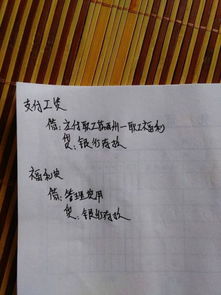 支付工资
借:应付职工薪酬—职工福利
贷:银行存款
福利费
借:管理费用
贷:银行存款